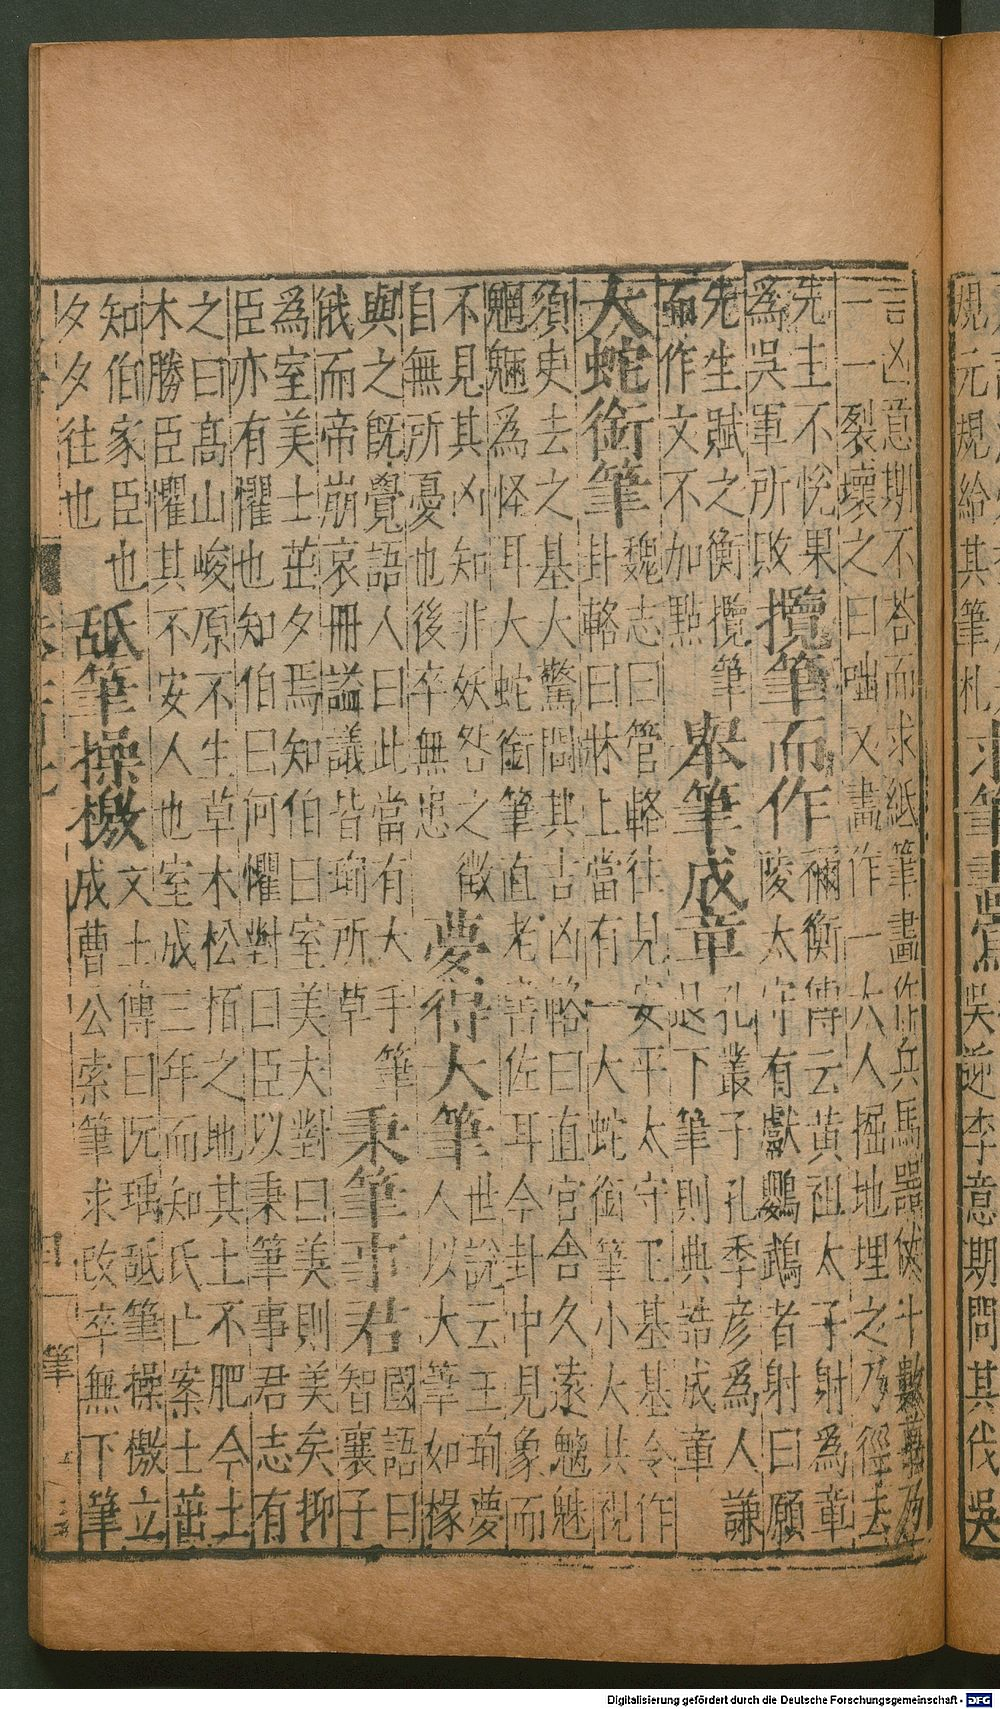 規元規給其筆札
吳逆李意期問其伐吳
言凶意期不荅而求紙筆畫作兵馬器仗十數萬乃
一一裂壞之曰咄又畫作一大人掘地埋之乃徑去
先主不悅果
為吳軍所敗
攬筆而作
禰衡傳云黃祖太子射為章
陵太守有獻鸚鵡者射曰願
先生賦之衡攬筆
而作文不加點
舉筆成章
孔叢子孔季彥為人謙
退下筆則典誥成章
大蛇銜筆
魏志曰管輅往見安平太守王基基令作
卦輅曰牀上當有一大蛇銜筆小大共視
須臾去之基大驚問其吉凶輅曰直官舍久遠魑魅
魍魎為怪耳大蛇銜筆直老書佐耳今卦中見象而
不見其凶知非妖咎之徵
自無所憂也後卒無患
夢得大筆
世說云王珣夢
人以大筆如椽
與之旣覺語人曰此當有大手筆
俄而帝崩哀冊謚議皆珣所草
秉筆事君
國語曰
智襄子
為室美士茁夕焉知伯曰室美夫對曰美則美矣抑
臣亦有懼也知伯曰何懼對曰臣以秉筆事君志有
之曰高山峻原不生草木松栢之地其土不肥今土
木勝臣懼其不安人也室成三年而知氏亡案士茁
知伯家臣也
夕夕往也
舐筆操檄
文士傳曰阮瑀舐筆操檄立
成曹公索筆求改卒無下筆
筆
Digitalisierung gefördert durch die Deutsche Forschungsgemeinschaft - DFG